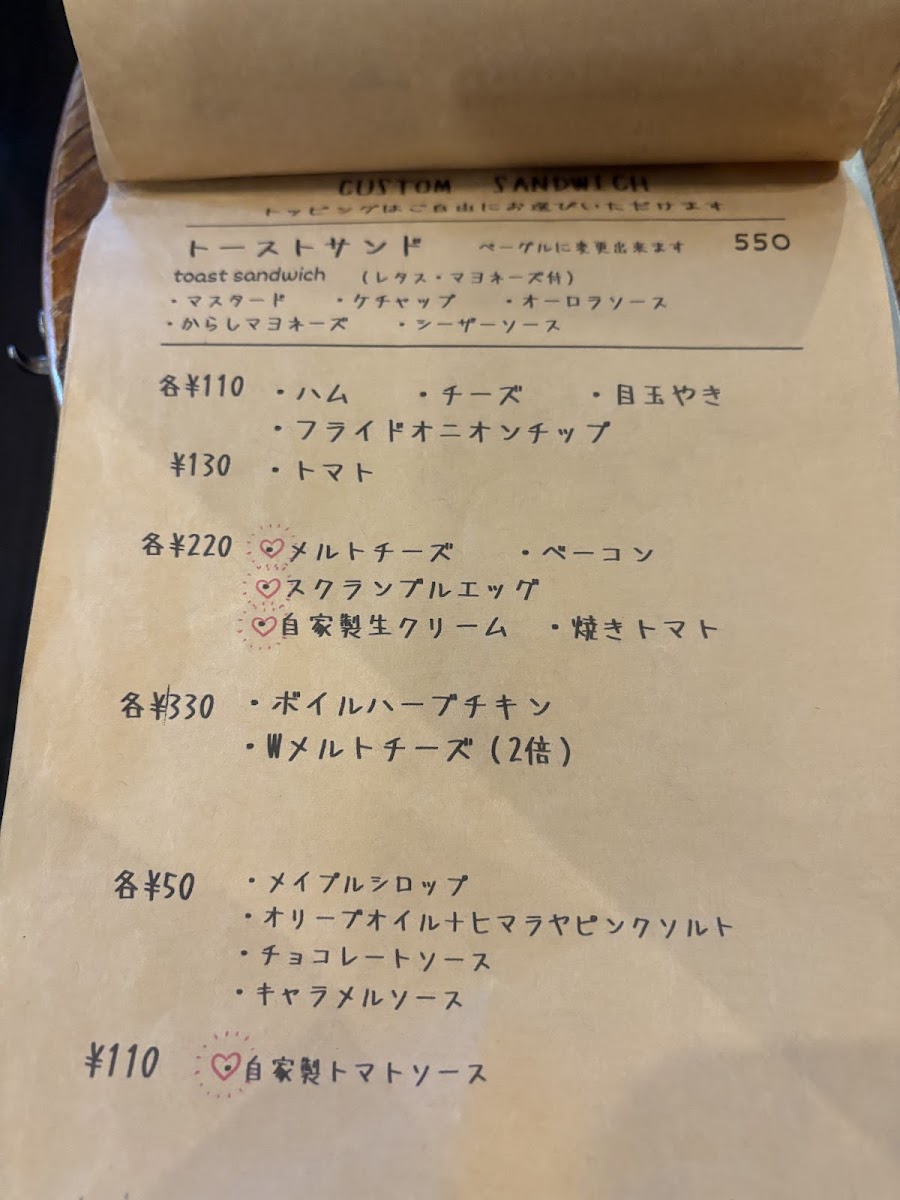 CUSTOM SANDWICH
トッピングはご自由にお選びいただけます
トーストサンド ベーグルに変更出来ます 550
toast sandwich (レタス・マヨネーズ付)
・マスタード ・ケチャップ ・オーロラソース
・からしマヨネーズ ・シーザーソース
各¥110 ・ハム ・チーズ ・目玉やき
・フライドオニオンチップ
¥130 ・トマト
各¥220 ・メルトチーズ ・ベーコン
・スクランブルエッグ
・自家製生クリーム ・焼きトマト
各¥330 ・ボイルハーブチキン
・Wメルトチーズ(2倍)
各¥50 ・メイプルシロップ
・オリーブオイル+ヒマラヤピンクソルト
・チョコレートソース
・キャラメルソース
¥110 ・自家製トマトソース